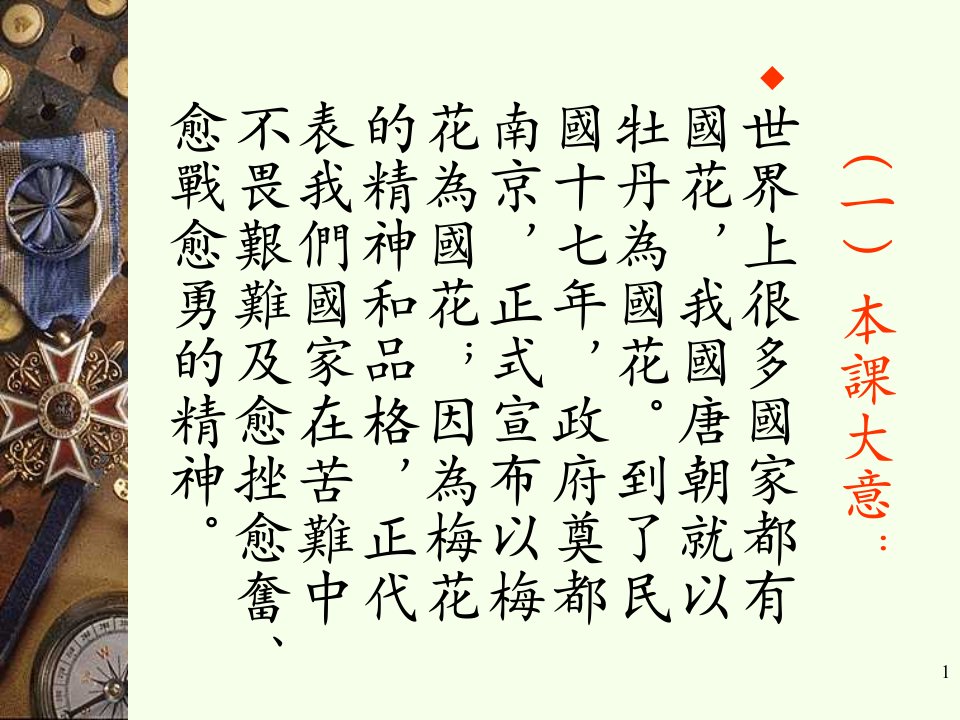 （一）本課大意：
◆世界上很多國家都有
國花，我國唐朝就以
牡丹為國花。到了民
國十七年，政府奠都
南京，正式宣布以梅
花為國花；因為梅花
的精神和品格，正代
表我們國家在苦難中
不畏艱難及愈挫愈奮、
愈戰愈勇的精神。
1